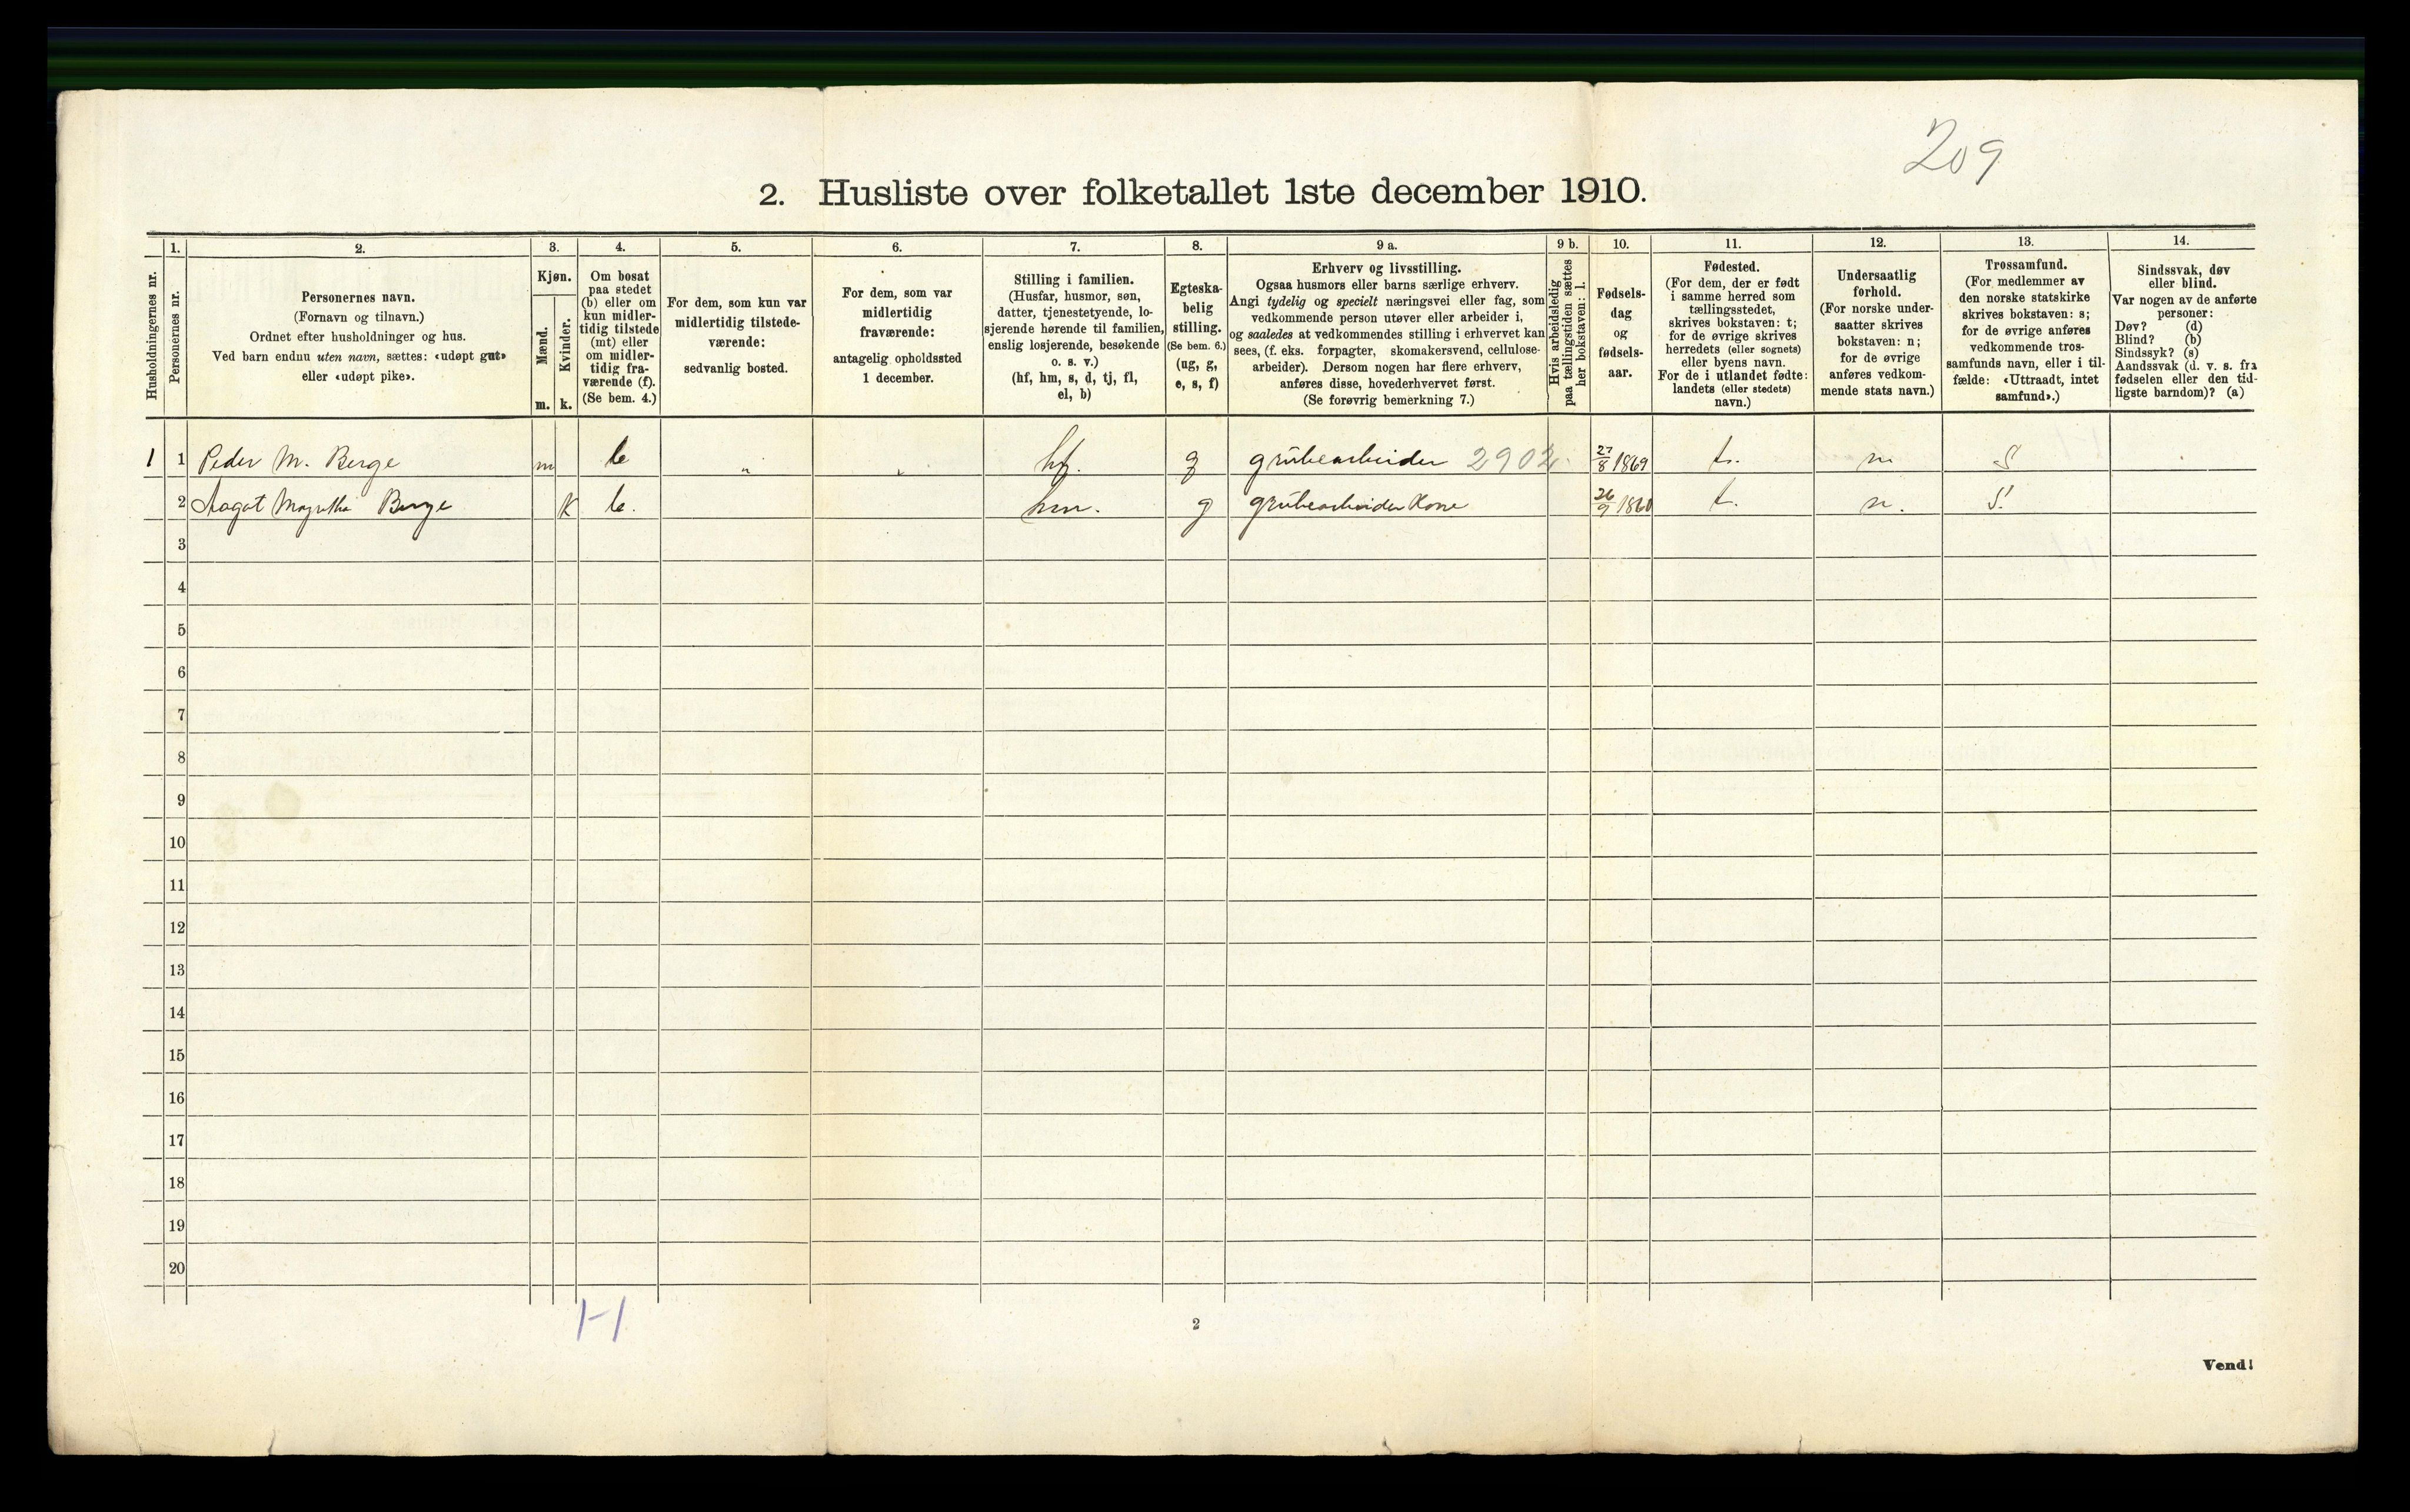 209
2. Husliste over folketallet 1ste december 1910.
Husholdningernes nr.
1.
Personernes nr.
2.
Personernes navn.
(Fornavn og tilnavn.)
Ordnet efter husholdninger og hus.
Ved barn endnu uten navn, sættes: «udøpt gut»
eller «udøpt pike».
3.
Kjøn.
Mænd.
m.
Kvinder.
k.
4.
Om bosat
paa stedet
(b) eller om
kun midler-
tidig tilstede
(mt) eller
om midler-
tidig fra-
værende (f).
(Se bem. 4.)
5.
For dem, som kun var
midlertidig tilstede-
værende:
sedvanlig bosted.
6.
For dem, som var
midlertidig
fraværende:
antagelig opholdssted
1 december.
7.
Stilling i familien.
(Husfar, husmor, søn,
datter, tjenestetyende, lo-
sjerende hørende til familien,
enslig losjerende, besøkende
o. s. v.)
(hf, hm, s, d, tj, fl,
el, b)
8.
Egteska-
belig
stilling.
(Se bem. 6.)
(ug, g,
e, s, f)
9 a.
Erhverv og livsstilling.
Ogsaa husmors eller barns særlige erhverv.
Angi tydelig og specielt næringsvei eller fag, som
vedkommende person utøver eller arbeider i,
og saaledes at vedkommendes stilling i erhvervet kan
sees, (f. eks. forpagter, skomakersvend, cellulose-
arbeider). Dersom nogen har flere erhverv,
anføres disse, hovederhvervet først.
(Se forøvrig bemerkning 7.)
9 b.
Hvis arbeidsledig
paa tællingstiden sættes
her bokstaven: l.
10.
Fødsels-
dag
og
fødsels-
aar.
11.
Fødested.
(For dem, der er født
i samme herred som
tællingsstedet,
skrives bokstaven: t;
for de øvrige skrives
herredets (eller sognets)
eller byens navn.
For de i utlandet fødte:
landets (eller stedets)
navn.)
12.
Undersaatlig
forhold.
(For norske under-
saatter skrives
bokstaven: n;
for de øvrige
anføres vedkom-
mende stats navn.)
13.
Trossamfund.
(For medlemmer av
den norske statskirke
skrives bokstaven: s;
for de øvrige anføres
vedkommende tros-
samfunds navn, eller i til-
fælde: «Uttraadt, intet
samfund».)
14.
Sindssvak, døv
eller blind.
Var nogen av de anførte
personer:
Døv? (d)
Blind? (b)
Sindssyk? (s)
Aandssvak (d. v. s. fra
fødselen eller den tid-
ligste barndom)? (a)
1 1 Peder M. Berge m b " " hf. g grubearbeider 2902 27/8 1869 t. n S
2 Aagot Berge K b. hm. g grubearbeider Kone 26/9 1860 t. n. S.
3
4
5
6
7
8
9
10
11
12
13
14
15
16
17
18
19
20
1-1
2
Vend!